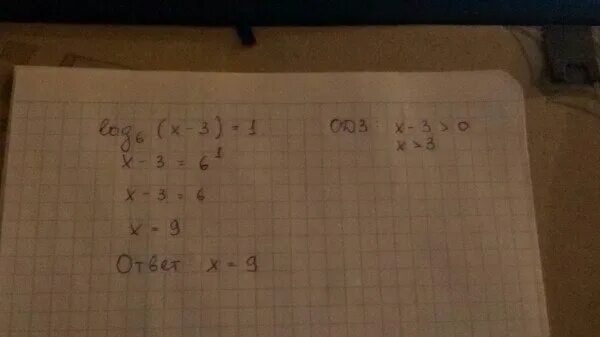 log₆ (x - 3) = 1
x - 3 = 6¹
x - 3 = 6
x = 9
Ответ x = 9
ОДЗ x - 3 > 0
x > 3